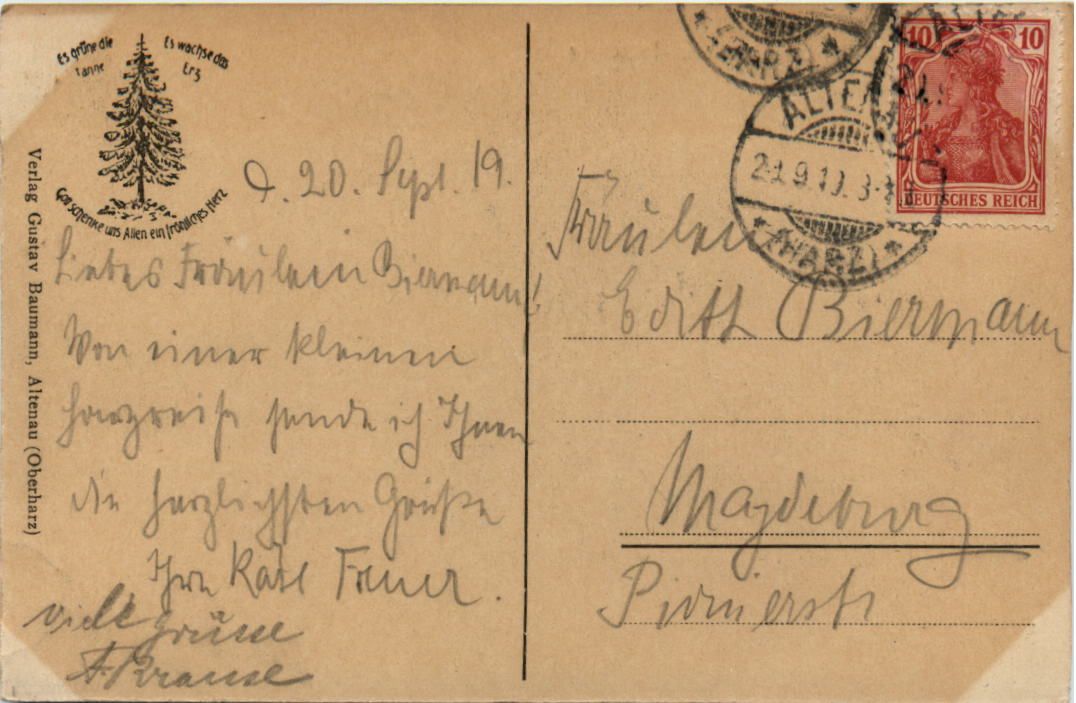 Es grüne die
Tanne
Es wachse das
Erz
Gott schenke uns Allen ein fröhliches Herz
Verlag Gustav Baumann, Altenau (Oberharz)
d. 20. Sept. 19.
Liebes Fräulein Biermann!
Von einer kleinen
Harzreise sende ich Ihnen
die herzlichsten Grüße
Ihre Käte
viele Grüsse
A. Krause
10 10
DEUTSCHES REICH
ALTENAU
21.9.19. 3-4
(HARZ)
(HARZ)
Fräulein
Edith Biermann
Magdeburg
Pionierstr